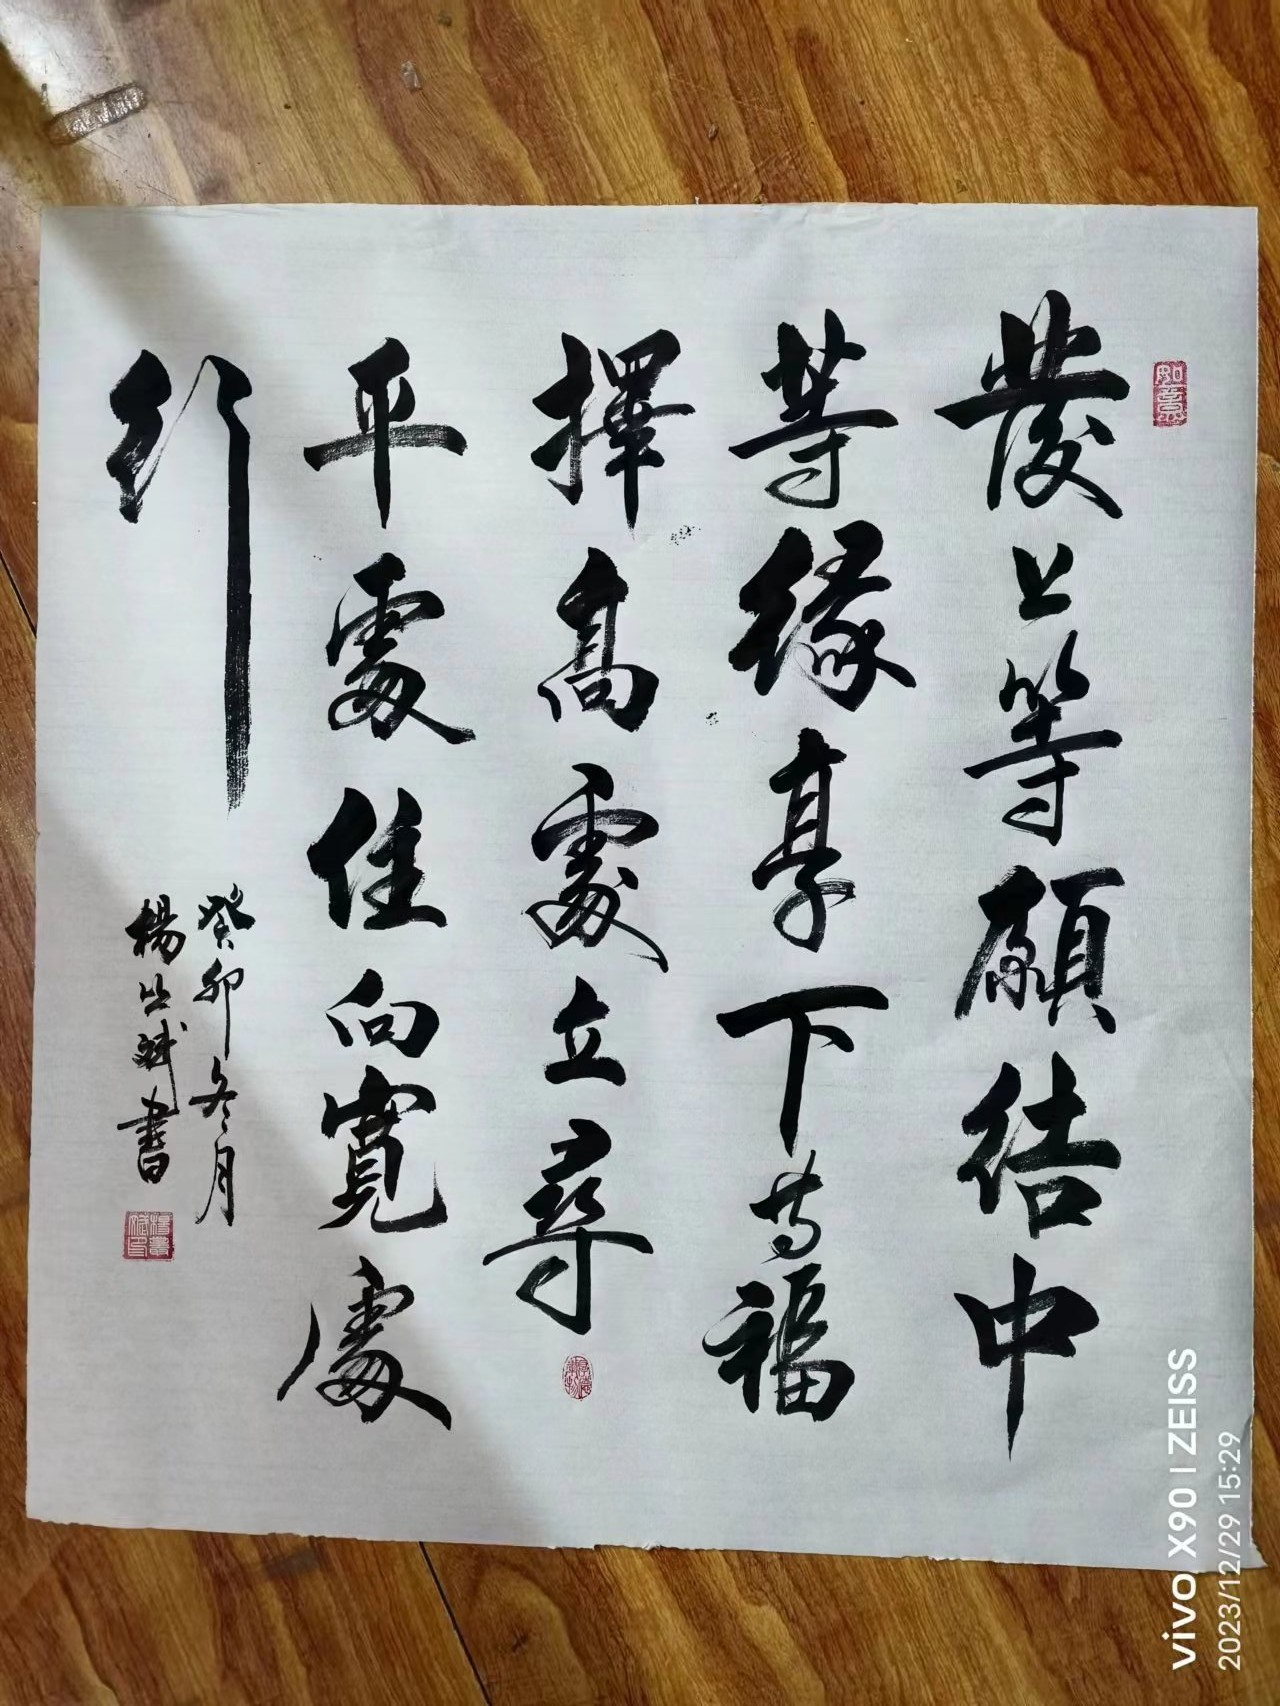 如意
發上等願結中
等緣享下等福
擇高處立尋
平處住向寬處
行
癸卯冬月
楊
書
vivo X90 | ZEISS
2023/12/29 15:29